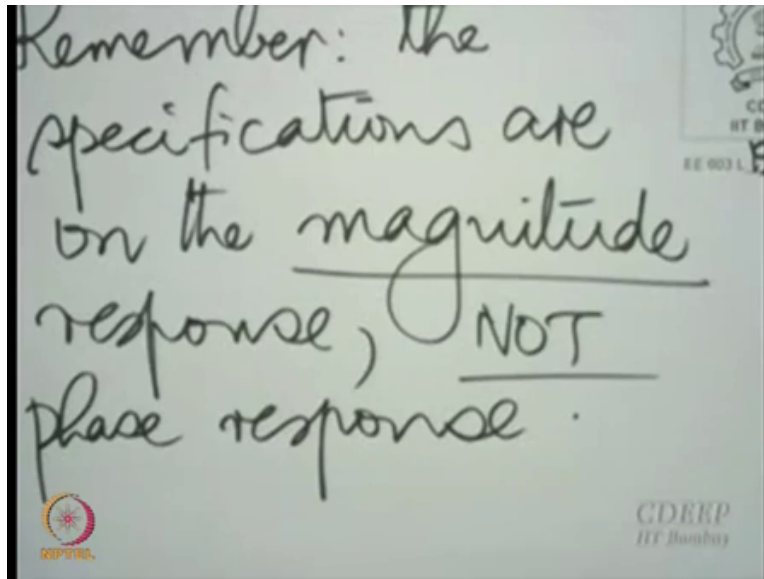 Remember: the
specifications are
on the magnitude
response, NOT
phase response.
EE 603 L
NPTEL
CDEEP
IIT Bombay